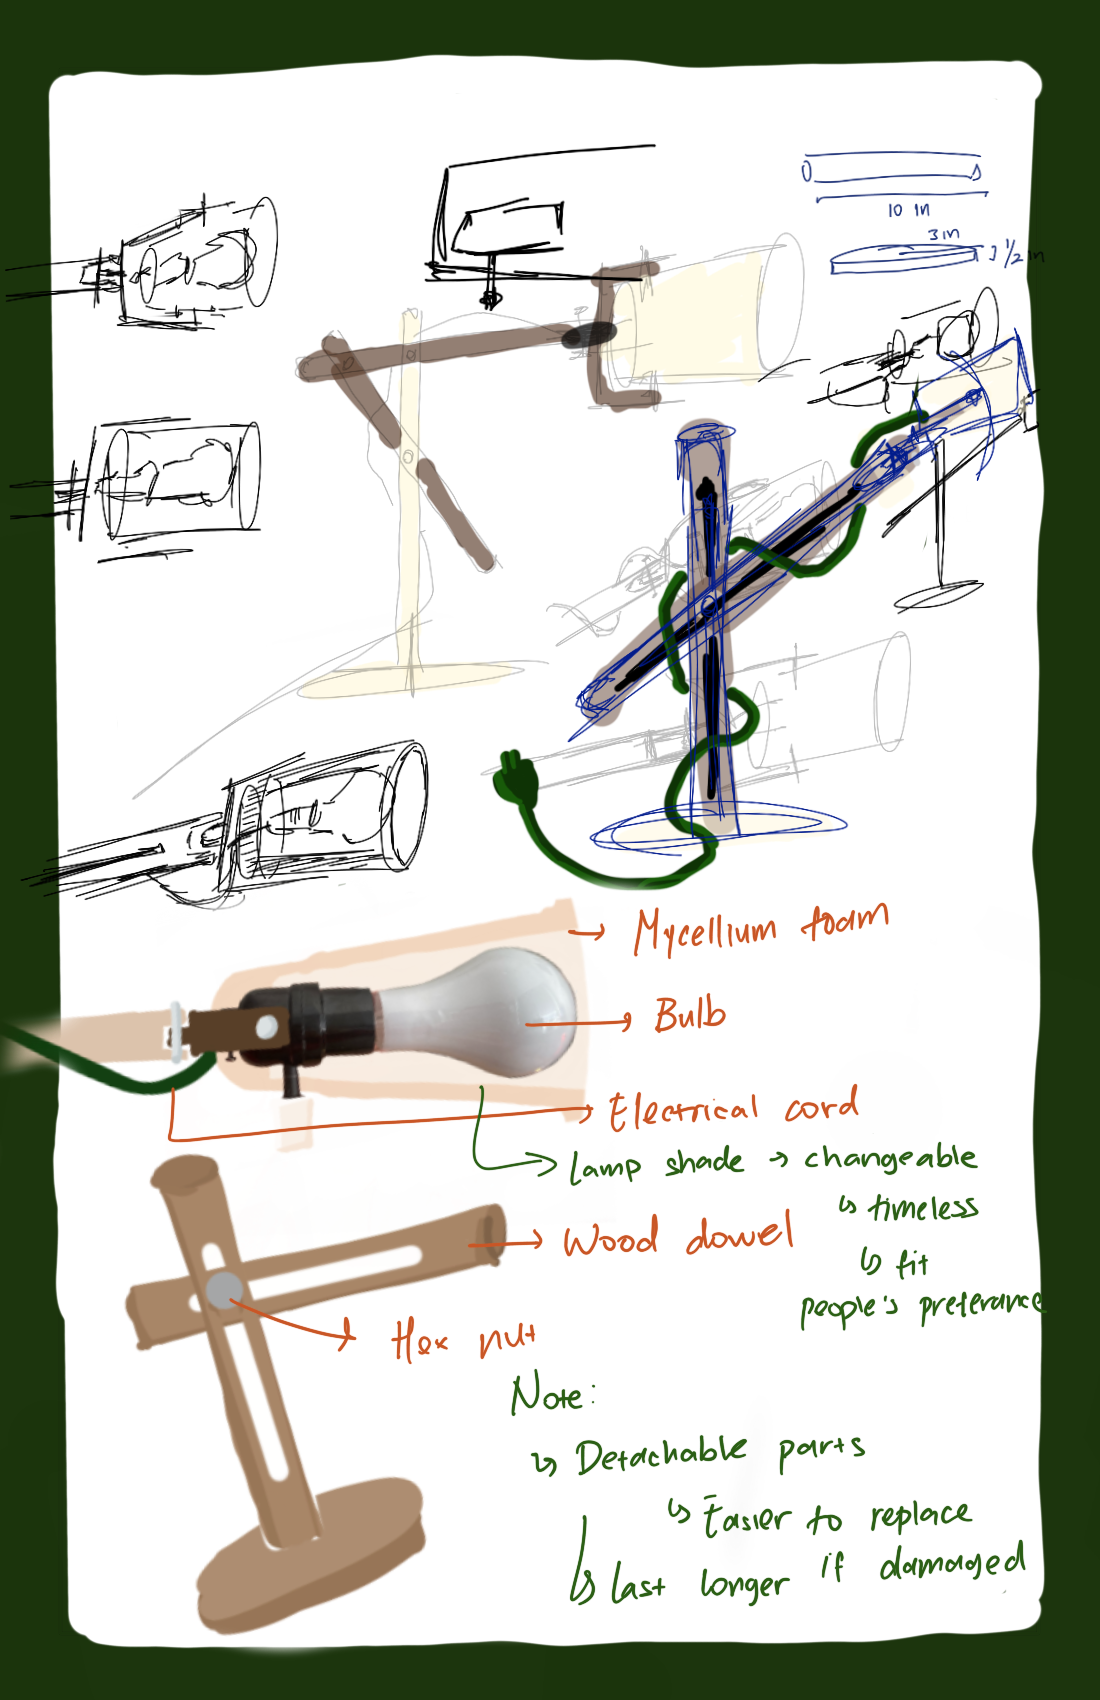 10 in
3in
1/2 in
Mycellium foam
Bulb
Electrical cord
lamp shade → changeable
↳ timeless
↳ fit
people's preferance
Wood dowel
Hex nut
Note:
↳ Detachable parts
↳ Easier to replace
↳ last longer if damaged